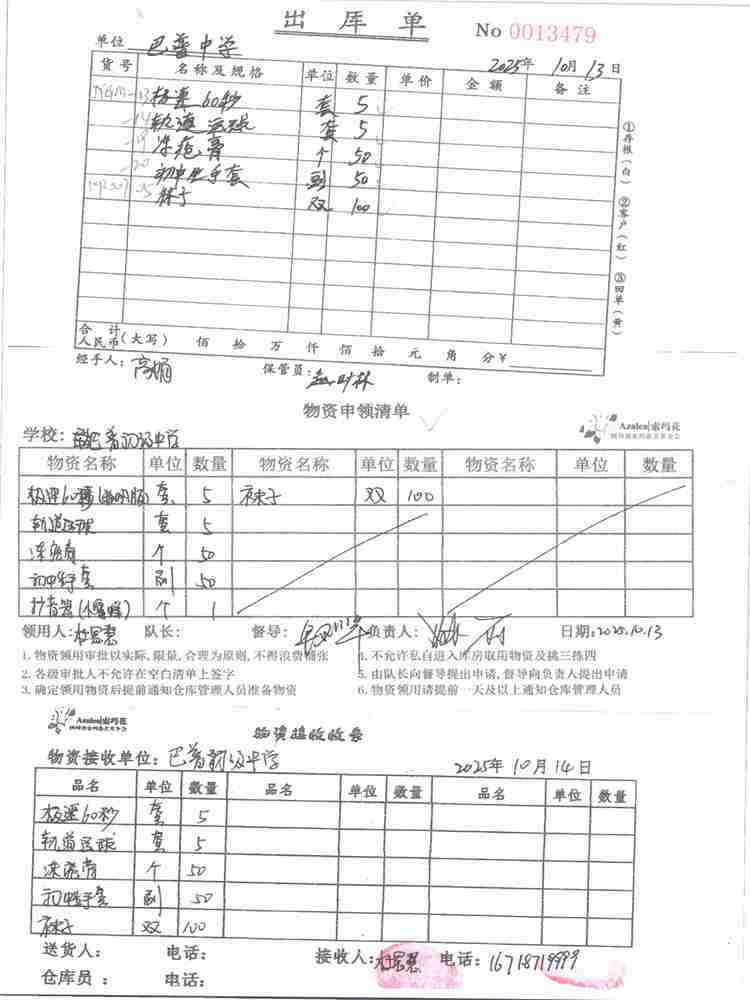 出 库 单
No 0013479
单位 巴普中学
2025年 10月 13日
货号 名称及规格 单位 数量 单价 金额 备注
极速60秒 套 5
轨道运球 套 5
冻疮膏 个 50
初中生手套 副 50
袜子 双 100
①存根(白) ②客户(红) ③回单(黄)
合计人民币(大写) 佰 拾 万 仟 佰 拾 元 角 分¥
经手人: 高炳 保管员: 制单:
物资申领清单
Azalea|索玛花
学校: 巴普初级中学
物资名称 单位 数量 物资名称 单位 数量 物资名称 单位 数量
极速60秒 套 5 袜子 双 100
轨道运球 套 5
冻疮膏 个 50
初中手套 副 50
扩音器 个 1
领用人: 队长: 督导: 负责人: 日期: 2025.10.13
1. 物资领用审批以实际,限量,合理为原则,不得浪费铺张 4. 不允许私自进入库房取用物资及挑三拣四
2. 各级审批人不允许在空白清单上签字 5. 由队长向督导提出申请,督导向负责人提出申请
3. 确定领用物资后提前通知仓库管理人员准备物资 6. 物资领用请提前一天及以上通知仓库管理人员
Azalea|索玛花
物资接收收条
物资接收单位: 巴普初级中学 2025年 10月 14日
品名 单位 数量 品名 单位 数量 品名 单位 数量
极速60秒 套 5
轨道运球 套 5
冻疮膏 个 50
初中手套 副 50
袜子 双 100
送货人: 电话: 接收人: 电话: 16718719999
仓库员: 电话: